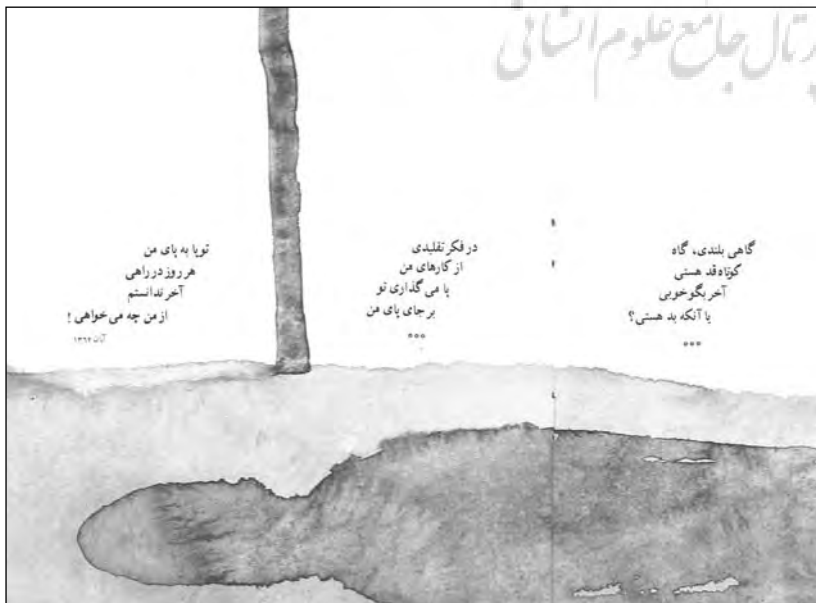 پرتال جامع علوم انسانی
گاهی بلندی، گاه
کوتاه قد هستی
آخر بگو خوبی
یا آنکه بد هستی؟
***
در فکر تقلیدی
از کارهای من
پا می گذاری تو
بر جای پای من
***
تو پا به پای من
هر روز در راهی
آخر ندانستم
از من چه می خواهی !